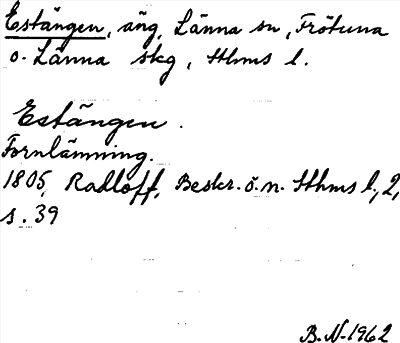 Estängen, äng, Länna sn, Frötuna
o. Länna skg, Sthms l.
Estängen.
Fornlämning.
1805, Radloff, Beskr. ö. n. Sthms l., 2,
s. 39
B. N-1962